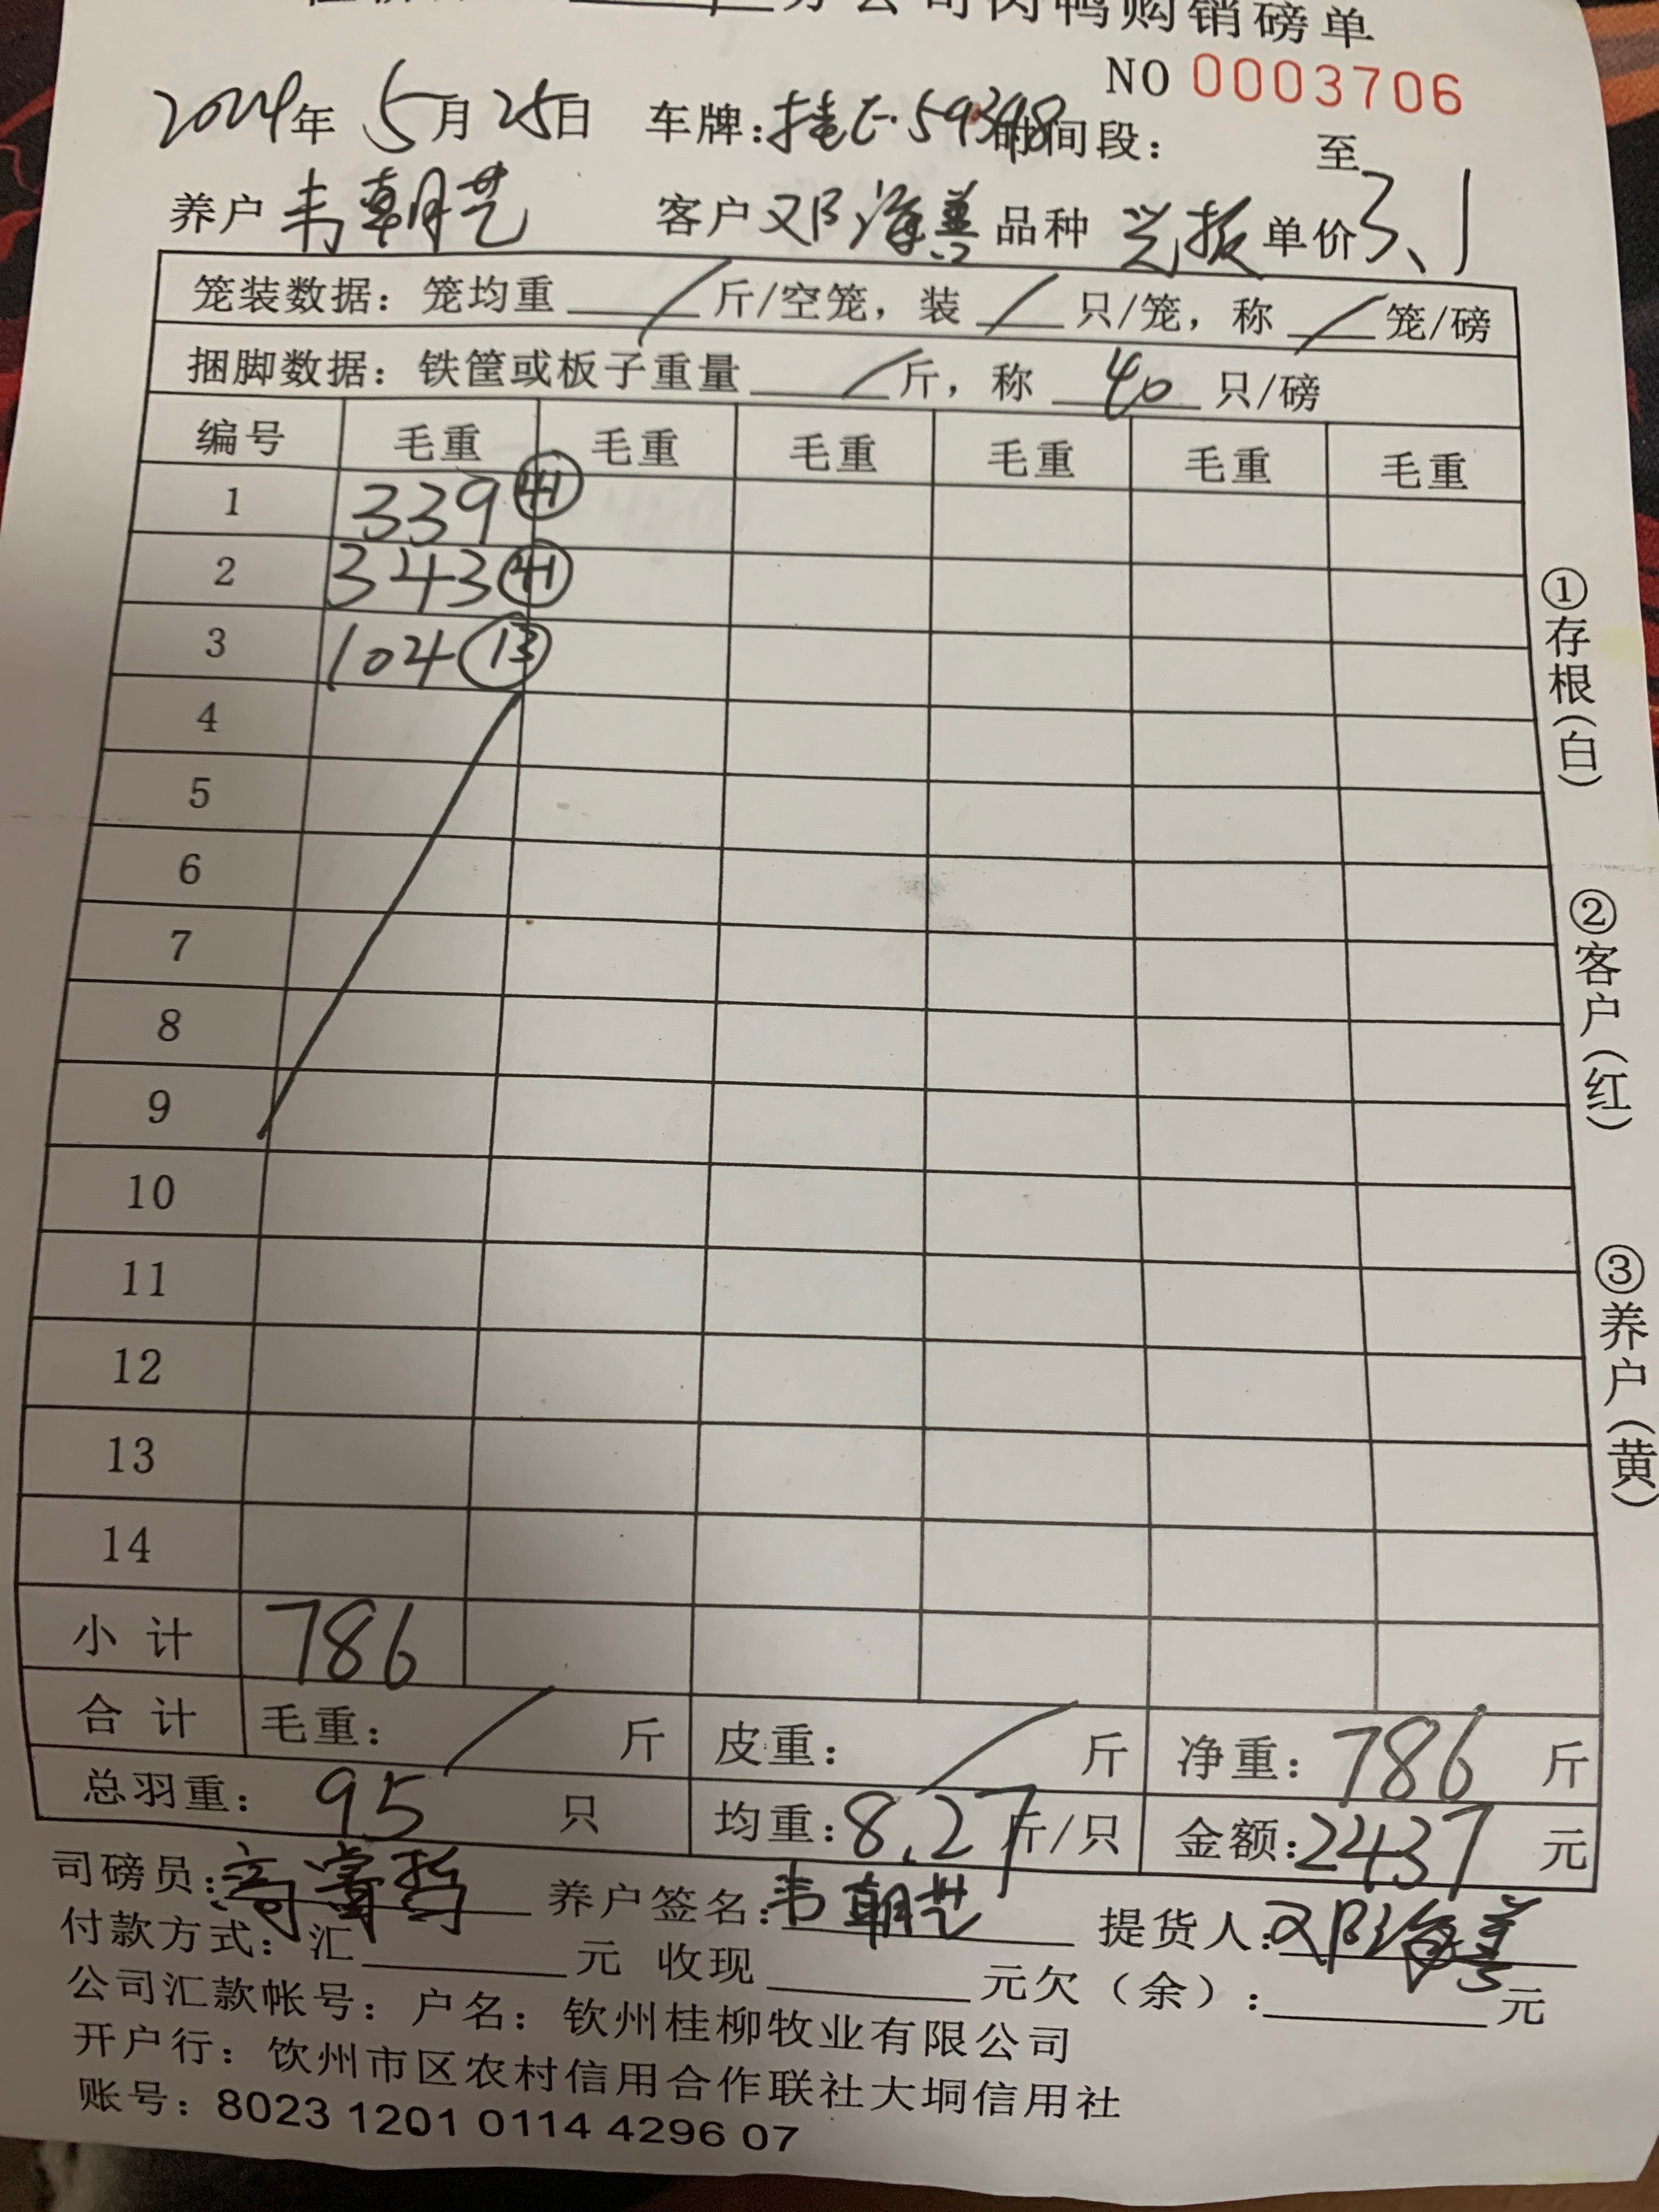 分公司肉鸭购销磅单
NO 0003706
2024年 5月 25日 车牌: 59348 时间段: 至
养户 韦朝艺 客户 邓海善 品种 单价 3.1
笼装数据: 笼均重 / 斤/空笼, 装 / 只/笼, 称 / 笼/磅
捆脚数据: 铁筐或板子重量 / 斤, 称 40 只/磅
编号 毛重 毛重 毛重 毛重 毛重 毛重
1 339 41
2 343 41
3 104 13
4
5
6
7
8
9
10
11
12
13
14
小计 786
合计 毛重: / 斤 皮重: / 斤 净重: 786 斤
总羽重: 95 只 均重: 8.27 斤/只 金额: 2437 元
司磅员: 养户签名: 韦朝艺 提货人: 邓海善
付款方式: 汇 元 收现 元欠(余): 元
公司汇款帐号: 户名: 钦州桂柳牧业有限公司
开户行: 钦州市区农村信用合作联社大垌信用社
账号: 8023 1201 0114 4296 07
①存根(白)
②客户(红)
③养户(黄)